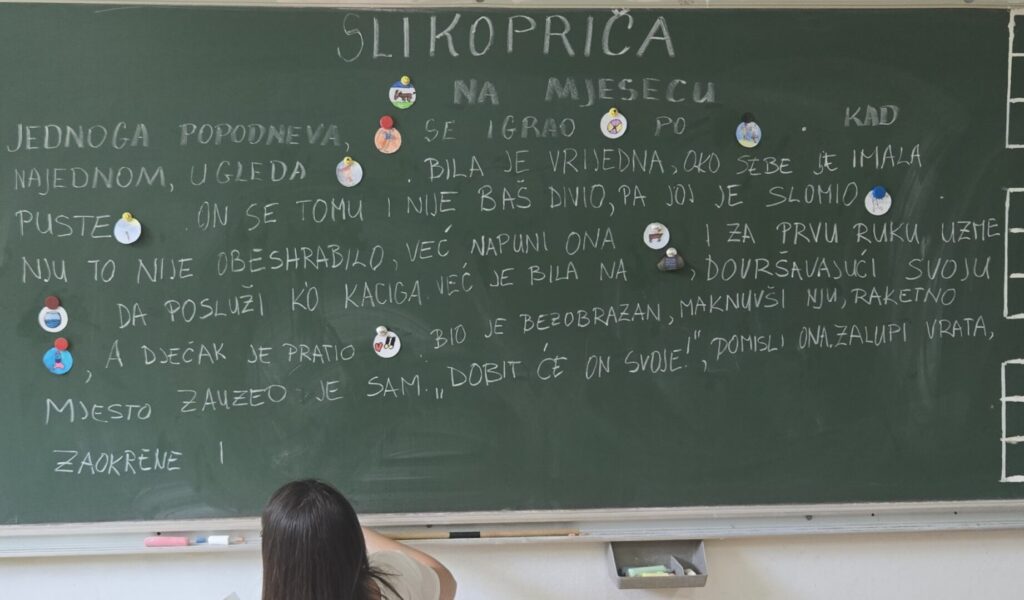 SLIKOPRIČA
NA MJESECU
JEDNOGA POPODNEVA, SE IGRAO PO . KAD
NAJEDNOM, UGLEDA . BILA JE VRIJEDNA, OKO SEBE JE IMALA
PUSTE . ON SE TOMU I NIJE BAŠ DIVIO, PA JOJ JE SLOMIO
NJU TO NIJE OBESHRABILO, VEĆ NAPUNI ONA I ZA PRVU RUKU UZME
DA POSLUŽI K'O KACIGA. VEĆ JE BILA NA , DOVRŠAVAJUĆI SVOJU
, A DJEČAK JE PRATIO . BIO JE BEZOBRAZAN, MAKNUVŠI NJU, RAKETNO
MJESTO ZAUZEO JE SAM. „DOBIT ĆE ON SVOJE!", POMISLI ONA, ZALUPI VRATA,
ZAOKRENE I